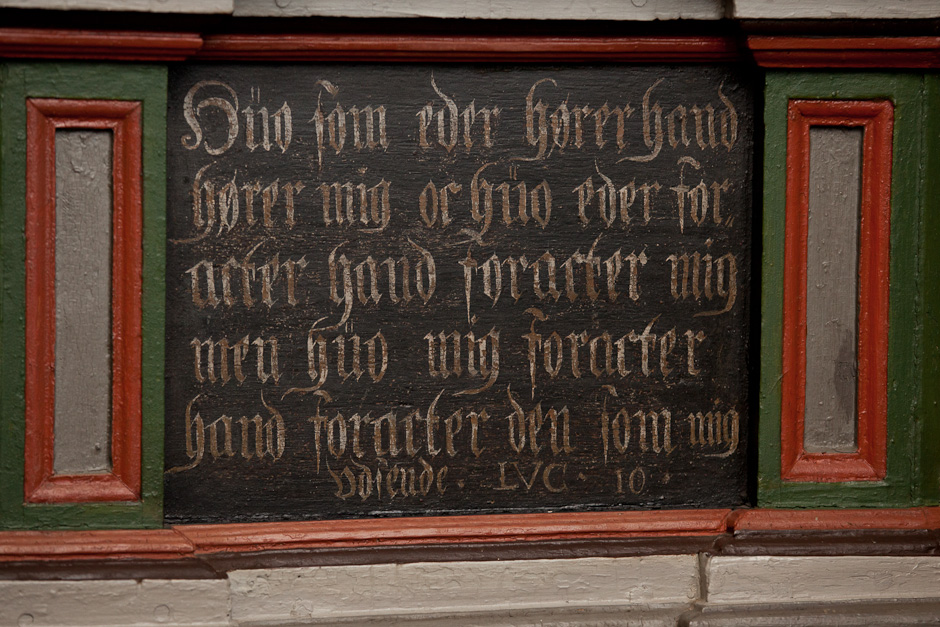 Hüo som eder hører hand
hører mig oc hüo eder for„
acter hand foracter mig
men hüo mig foracter
hand foracter den som mig
vdsende. LVC. 10.